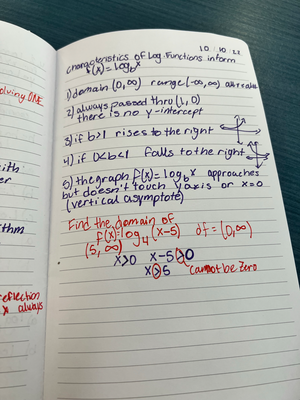 10/10/22
Characteristics of Log Functions inform
f(x) = log_b x
1) domain (0,∞) range(-∞,∞)
2) always passed thru (1,0)
there is no y-intercept
3) if b>1 rises to the right
4) if 0<b<1 falls to the right
5) the graph f(x)=log_b x approaches
but doesn't touch y axis or x=0
(vertical asymptote)
Find the domain of
f(x)=log_4 (x-5) df = (0,∞)
(5,∞)
x>0 x-5>0
x>5 cannot be zero
olving ONE
ith
er
thm
reflection
x always